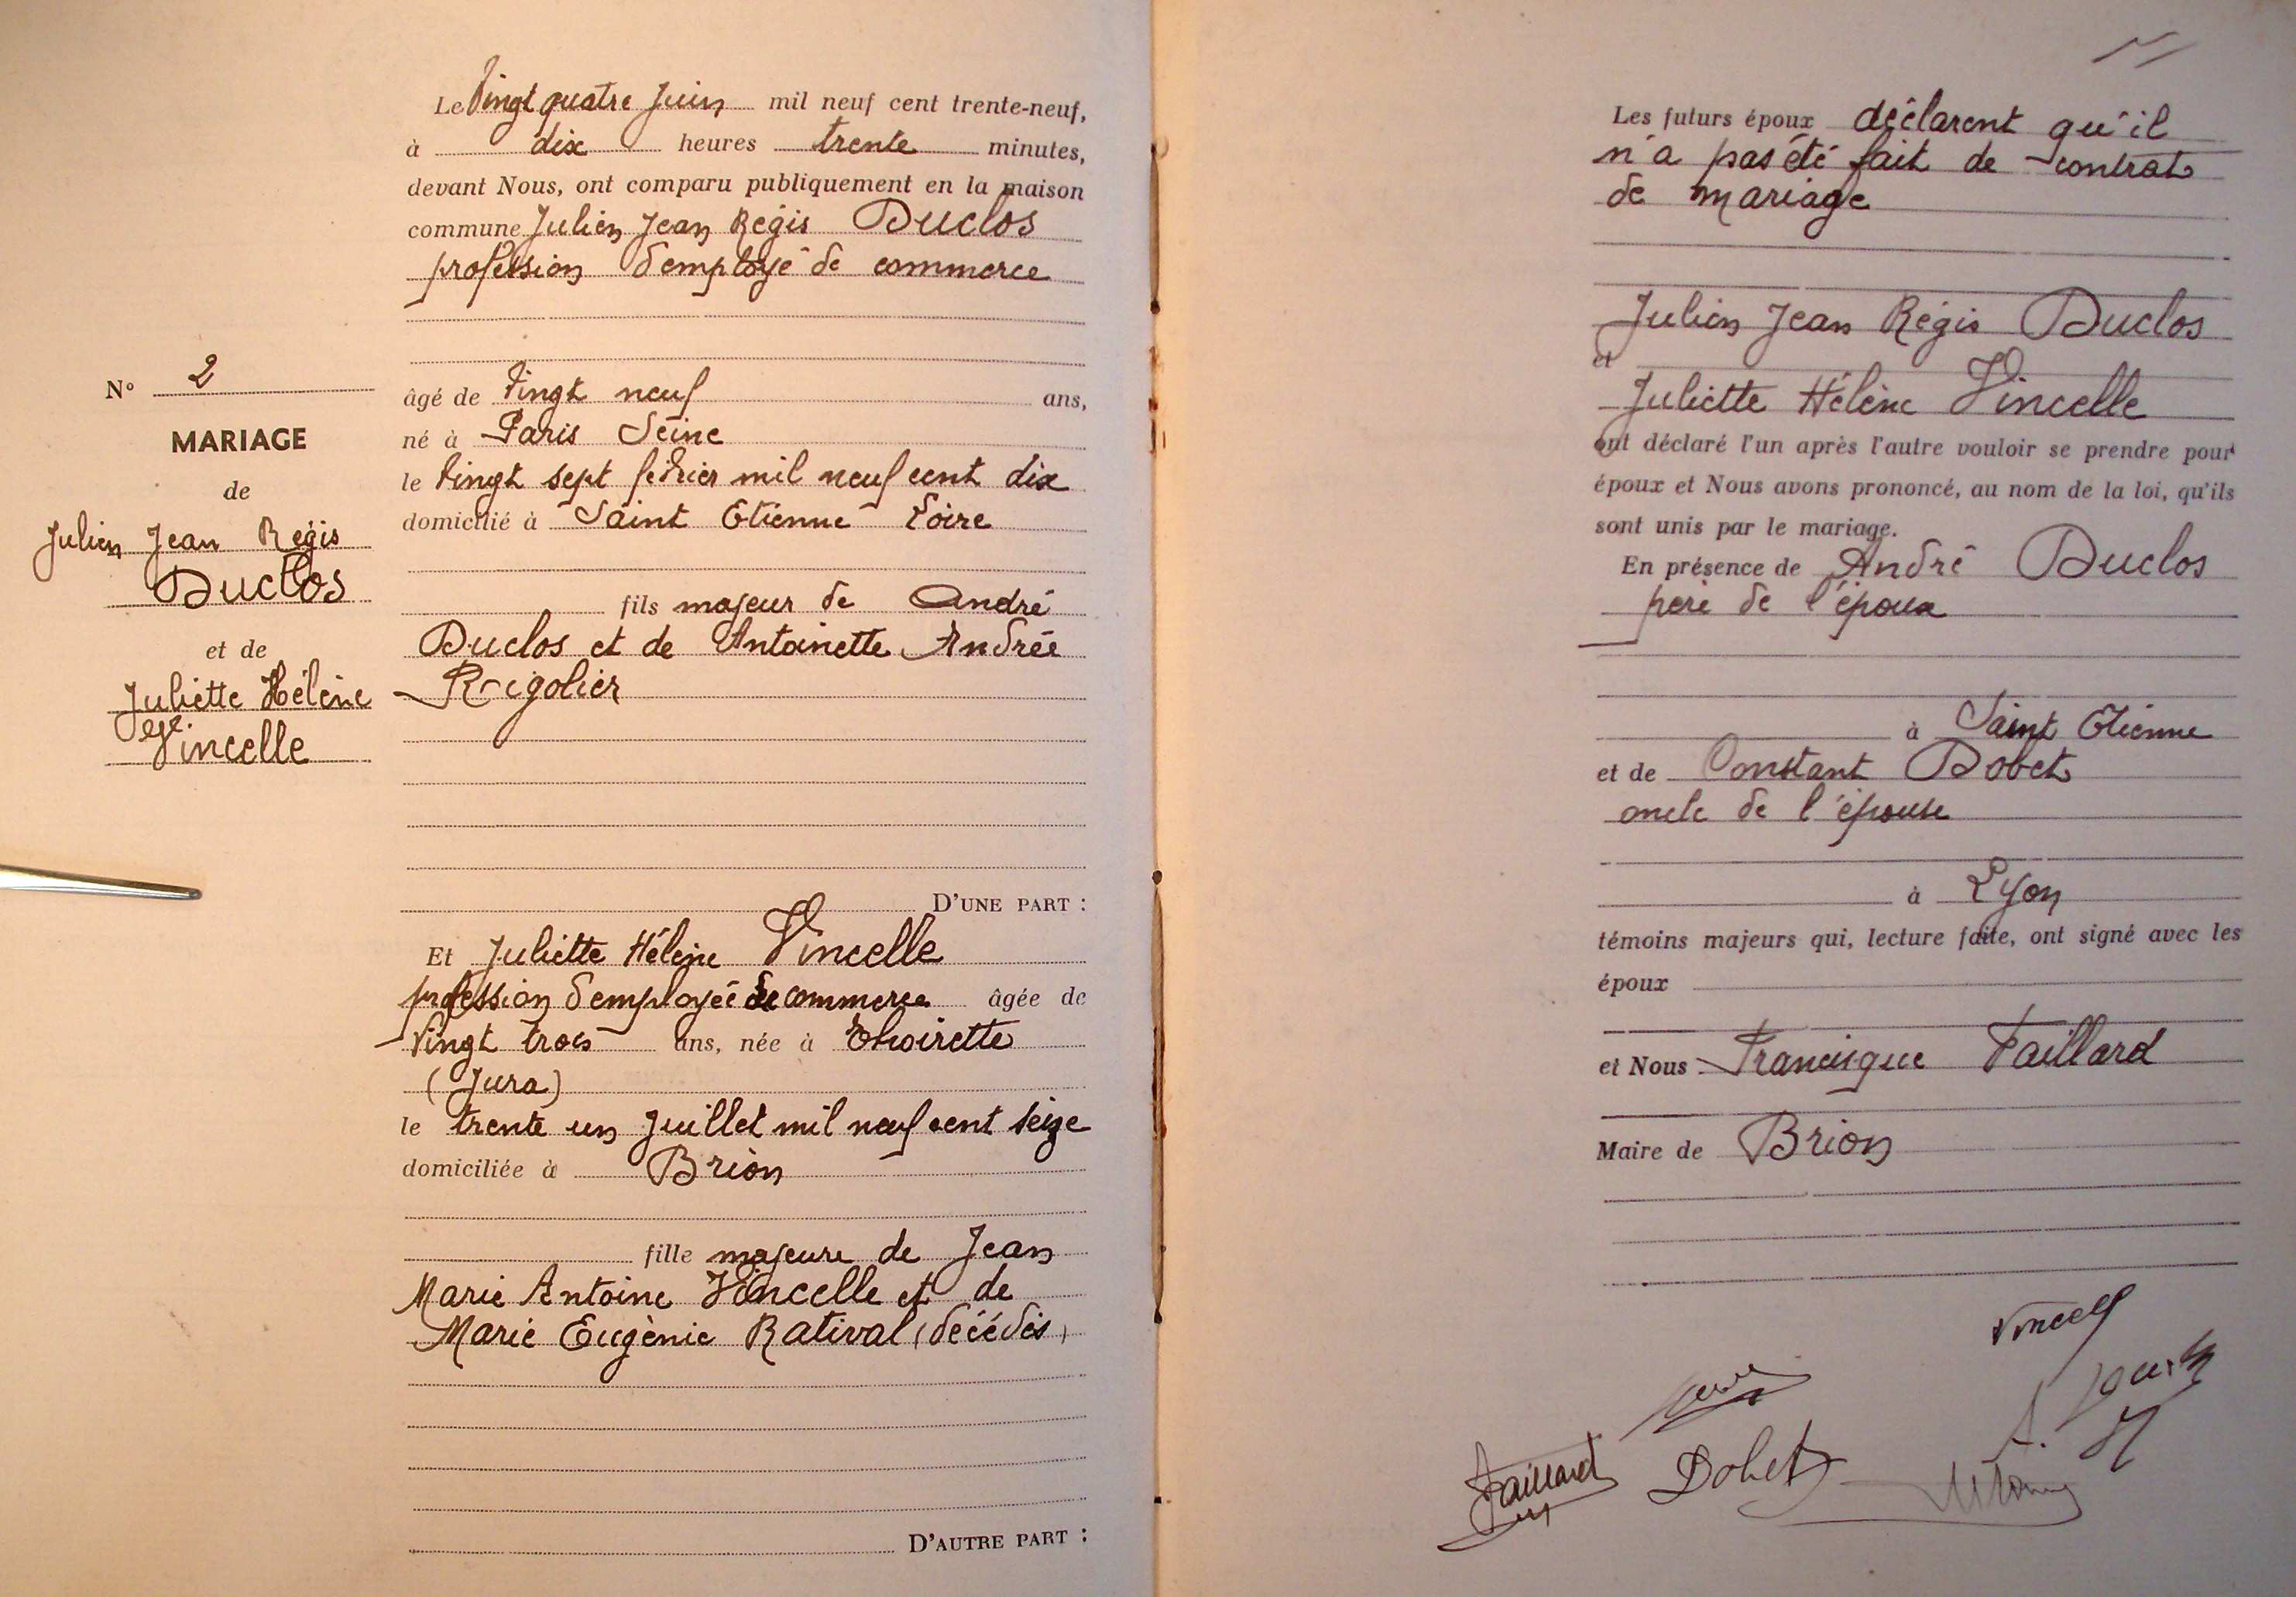 N° 2
MARIAGE
de
Julien Jean Régis
Duclos
et de
Juliette Hélène
Vincelle
Le Vingt quatre Juin mil neuf cent trente-neuf,
à dix heures trente minutes,
devant Nous, ont comparu publiquement en la maison
commune Julien Jean Régis Duclos
profession d'employé de commerce
âgé de vingt neuf ans,
né à Paris Seine
le vingt sept février mil neuf cent dix
domicilié à Saint Etienne Loire
fils majeur de André
Duclos et de Antoinette Andrée
Rigolier
D'UNE PART :
Et Juliette Hélène Vincelle
profession d'employée de commerce âgée de
vingt trois ans, née à Thoirette
(Jura)
le trente un Juillet mil neuf cent seize
domiciliée à Brion
fille majeure de Jean
Marie Antoine Vincelle et de
Marie Eugènie Ratival (décédés)
D'AUTRE PART :
Les futurs époux déclarent qu'il
n'a pas été fait de contrat
de mariage
Julien Jean Régis Duclos
et
Juliette Hélène Vincelle
ont déclaré l'un après l'autre vouloir se prendre pour
époux et Nous avons prononcé, au nom de la loi, qu'ils
sont unis par le mariage.
En présence de André Duclos
père de l'époux
à Saint Etienne
et de Constant Dobet
oncle de l'épouse
à Lyon
témoins majeurs qui, lecture faite, ont signé avec les
époux
et Nous Francisque Taillard
Maire de Brion
Vincelle
Taillard
Dobet